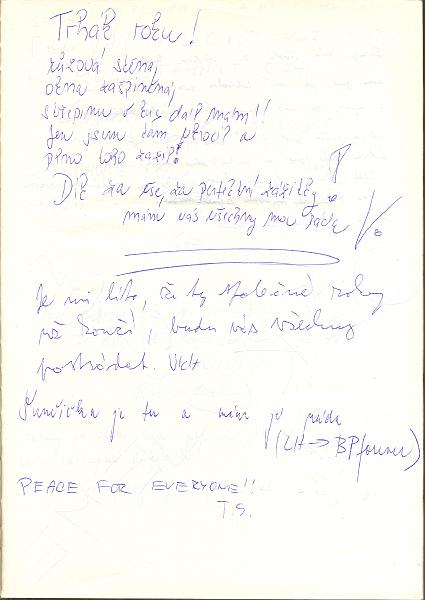 Trhák roku!
růžová stěna,
okna zašpiněná,
střepinu v žíle dál mám!!
Jen jsem tam vkročil a
plno toho zažil!
Dík za vše, za perfektní zážitky
mám vás všechny moc ráda
Je mi líto, že ty společné roky
už končí, budu vás všechny
postrádat.
je tu a mám jí ráda
(LH → BP forever)
PEACE FOR EVERYONE!!
T.S.